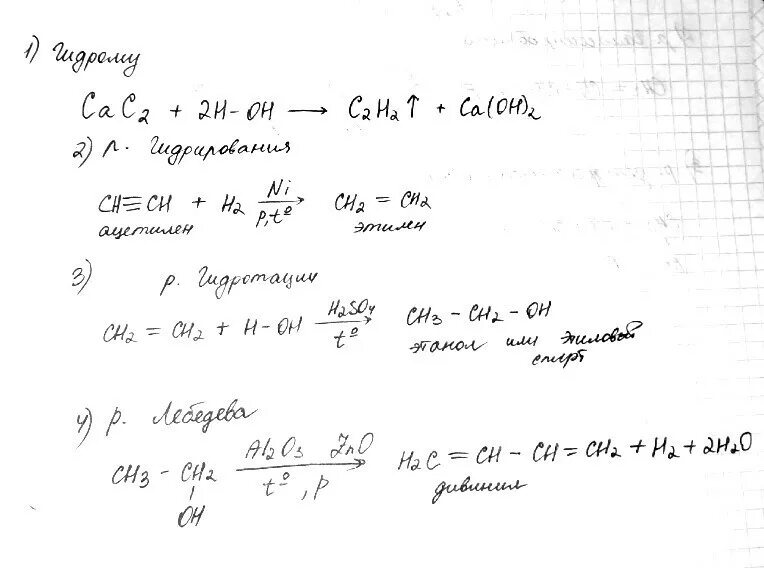 1) Гидролиз
CaC2 + 2H-OH → C2H2↑ + Ca(OH)2
2) р. Гидрирования
CH≡CH + H2 Ni p,t° → CH2 = CH2
ацетилен этилен
3) р. Гидротации
CH2 = CH2 + H-OH H2SO4 t° → CH3 - CH2 - OH
этанол или этиловой
спирт
4) р. Лебедева
CH3 - CH2 Al2O3 ZnO t°, p → H2C = CH - CH = CH2 + H2 + 2H2O
OH дивинил